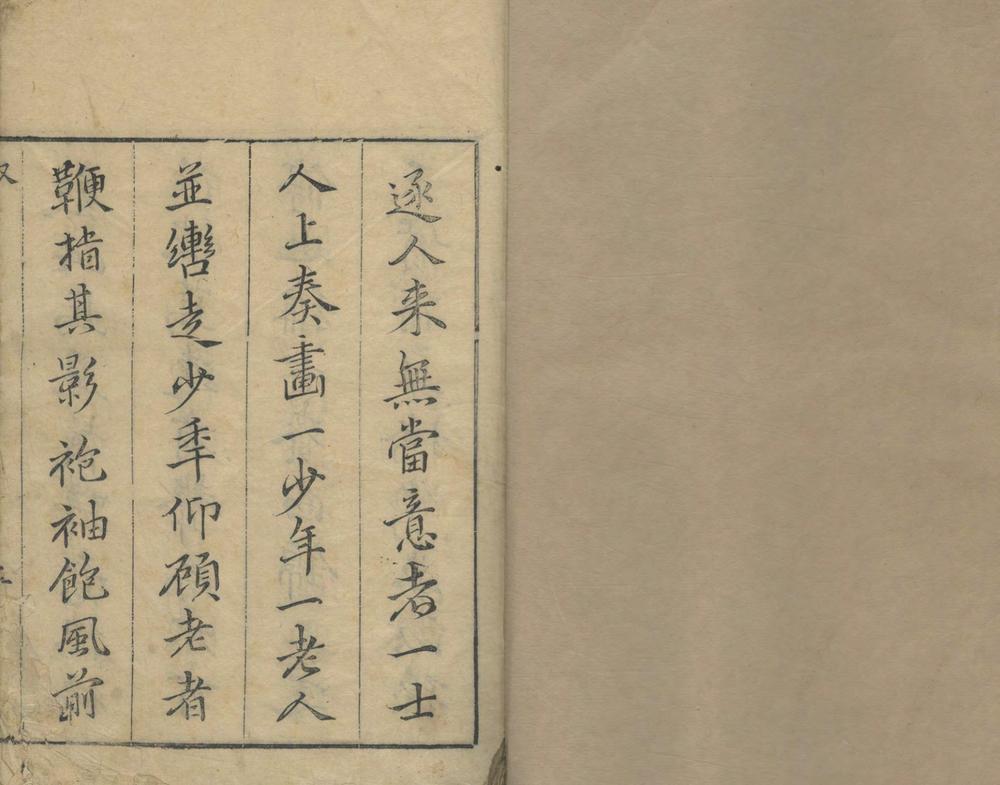 逐人来無當意者一士
人上奏畫一少年一老人
並轡走少季仰顾老者
鞭指其影袍袖飽風前